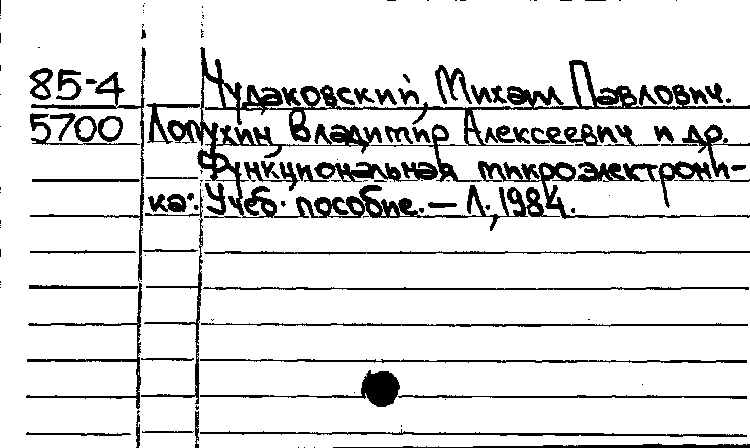 85-4 Чудаковский, Михаил Павлович.
5700 Лопухин, Владимир Алексеевич и др.
Функциональная микроэлектрони-
ка: Учеб. пособие. — Л., 1984.